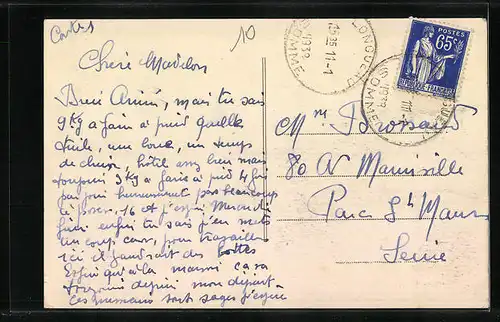 Cartes
10
Chère Madelon
Bien Arrivé, mais tu sais
9 Kg a faire a pied quelle
tuile, une boue, un temps
de chien, hôtel assez bien mais
toujours 3 Kg a faire a pied 4 fois
par jour heureusement pas beaucoup
à poser. 16 et j'espère Mercredi
finir enfin tu sais j'en mets
un coup car pour travailler
ici il faudrait des bottes
Enfin qu'à la maison ca va
toujours depuis mon départ
Les mamans sont sages j'espère
LONGUEAU
SOMME
15 35 11-1
1938
POSTES
65c
REPUBLIQUE FRANÇAISE
SOMME
1938
Mme Brossard
80 Av Marinville
Parc St Maur
Seine